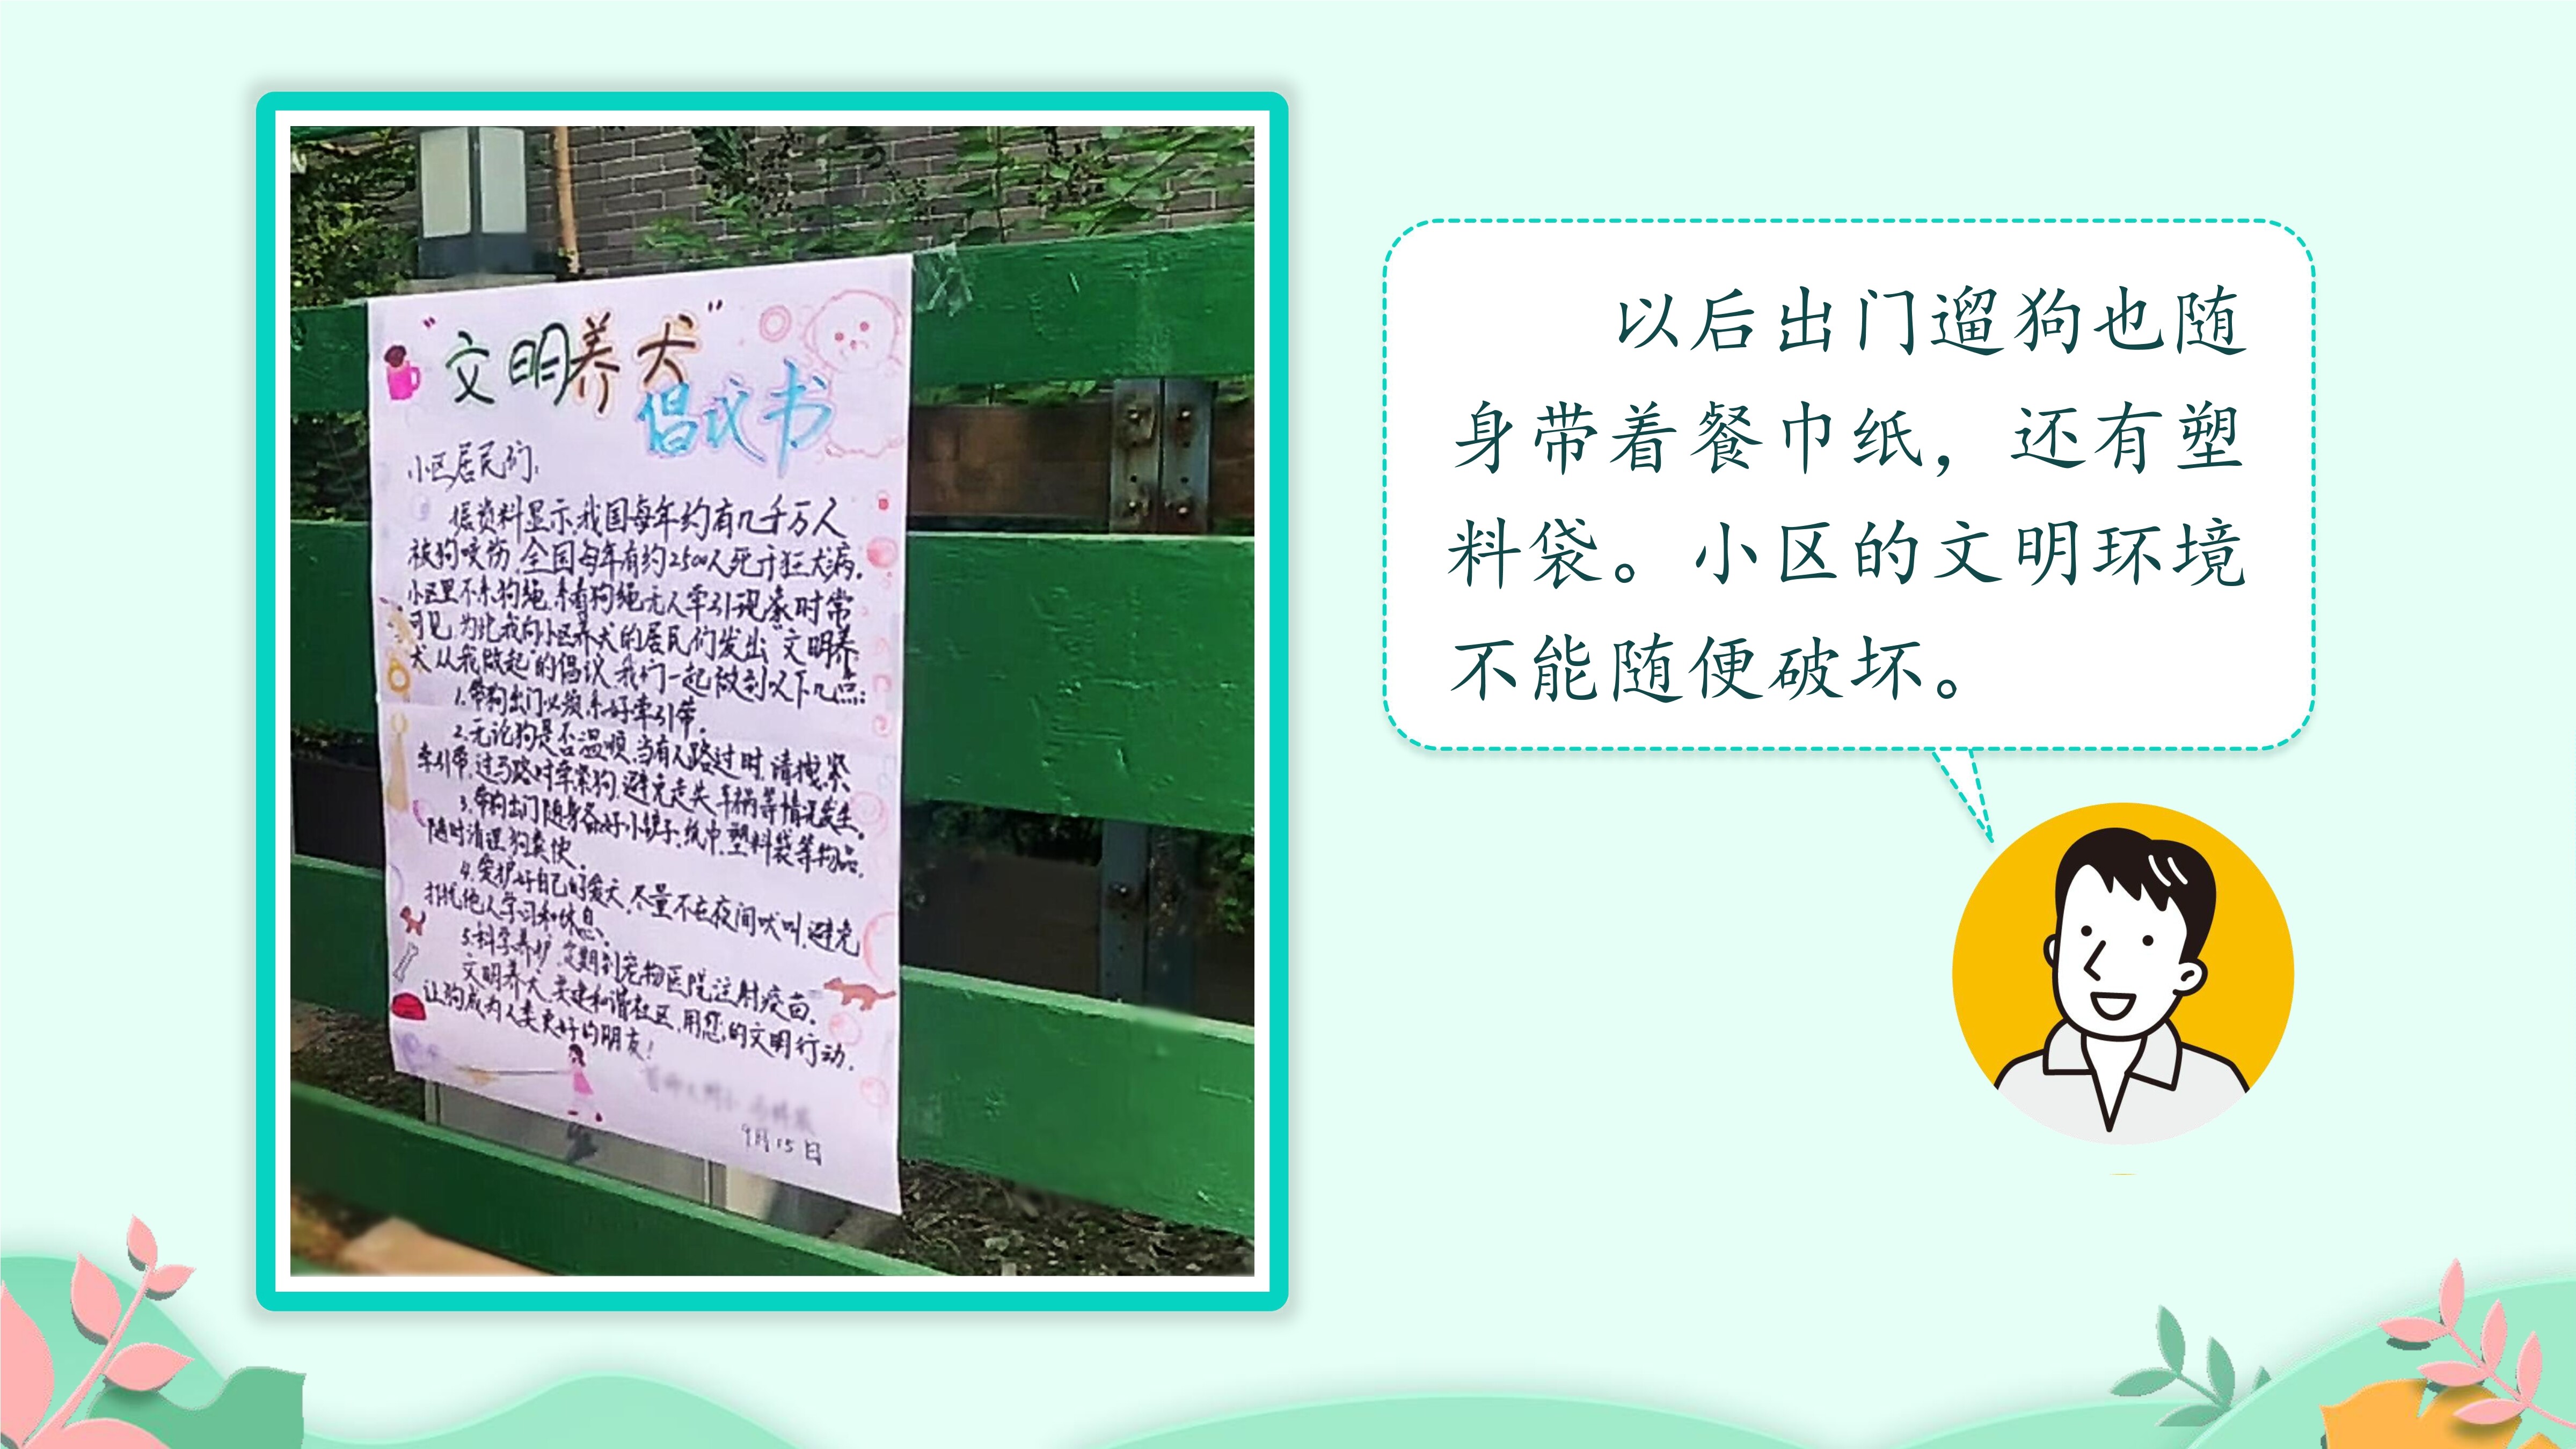 “文明养犬”
倡议书
小区居民们:
据资料显示,我国每年约有几千万人
被狗咬伤,全国每年有约2500人死于狂犬病。
小区里不系狗绳,系着狗绳无人牵引现象时常
可见,为此我向小区养犬的居民们发出“文明养
犬从我做起”的倡议,我们一起做到以下几点:
1.带狗出门必须系好牵引带。
2.无论狗是否温顺,当有人路过时,请拽紧
牵引带,过马路时牵紧狗,避免走失、车祸等情况发生。
3.带狗出门随身备好小铲子、纸巾、塑料袋等物品,
随时清理狗粪便。
4.爱护好自己的爱犬,尽量不在夜间吠叫,避免
打扰他人学习和休息。
5.科学养护,定期到宠物医院注射疫苗。
文明养犬,共建和谐社区,用您的文明行动,
让狗成为人类更好的朋友!
9月15日
以后出门遛狗也随
身带着餐巾纸，还有塑
料袋。小区的文明环境
不能随便破坏。